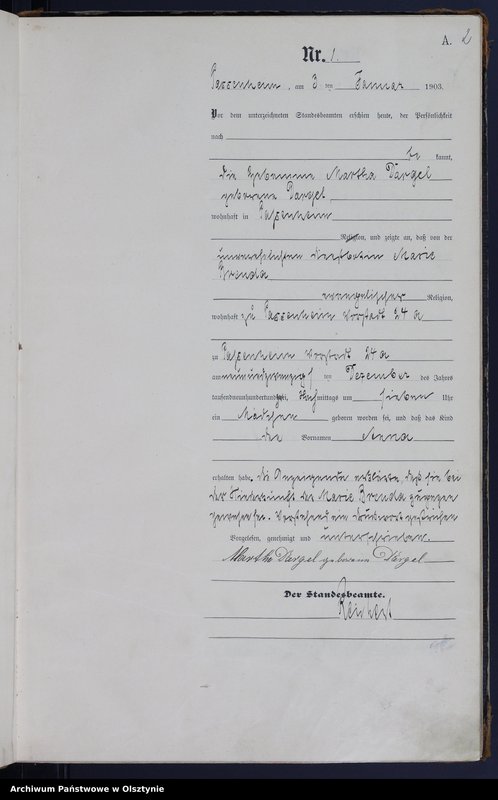 A. 2
Nr. 1.
Passenheim, am 3 ten Januar 1903.
Vor dem unterzeichneten Standesbeamten erschien heute, der Persönlichkeit
nach
be kannt,
die Hebamme Martha Dargel
geborene Dargel
wohnhaft in Passenheim
Religion, und zeigte an, daß von der
unverehelichten Marie
Brenda
evangelischer Religion,
wohnhaft zu Passenheim Vorstadt 24 a
zu Passenheim Vorstadt 24 a
am neunundzwanzigsten Dezember des Jahres
tausendneunhundert zwei, Nachmittags um sieben Uhr
ein Mädchen geboren worden sei, und daß das Kind
die Vornamen Anna
erhalten habe. Die Anzeigende erklärte, daß sie bei
der Niederkunft der Marie Brenda zugegen
gewesen sei. Vorstehend ein Druckwort gestrichen
Vorgelesen, genehmigt und unterschrieben
Martha Dargel geborene Dargel
Der Standesbeamte.
Archiwum Państwowe w Olsztynie